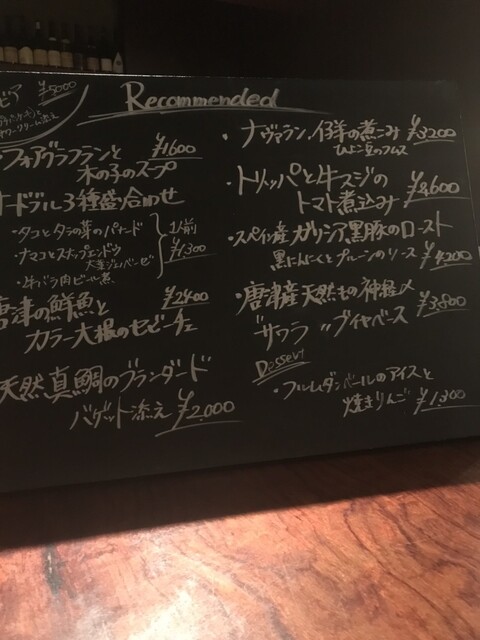 ビア ¥5000
サワークリーム添え
Recommended
フォアグラフランと ¥1600
木の子のスープ
オードブル3種盛り合わせ
・タコとタラの芽のパナード
・ナマコとスナップエンドウ
大葉ジェノベーゼ
・牛バラ肉ビール煮
1人前
¥1,300
唐津の鮮魚と ¥2400
カラー大根のセビーチェ
天然真鯛のブランダード
バゲット添え ¥2,000
・ナヴァラン、仔羊の煮こみ ¥3200
ひよこ豆のフムス
・トリッパと牛スジの
トマト煮込み ¥3600
・スペイン産ガリシア黒豚のロースト
黒にんにくとプルーンのソース ¥4200
・唐津産天然もの神経〆
サワラ〃ブイヤベース ¥3,800
Dessert
・フルムダンベールのアイスと
焼きりんご ¥1,300